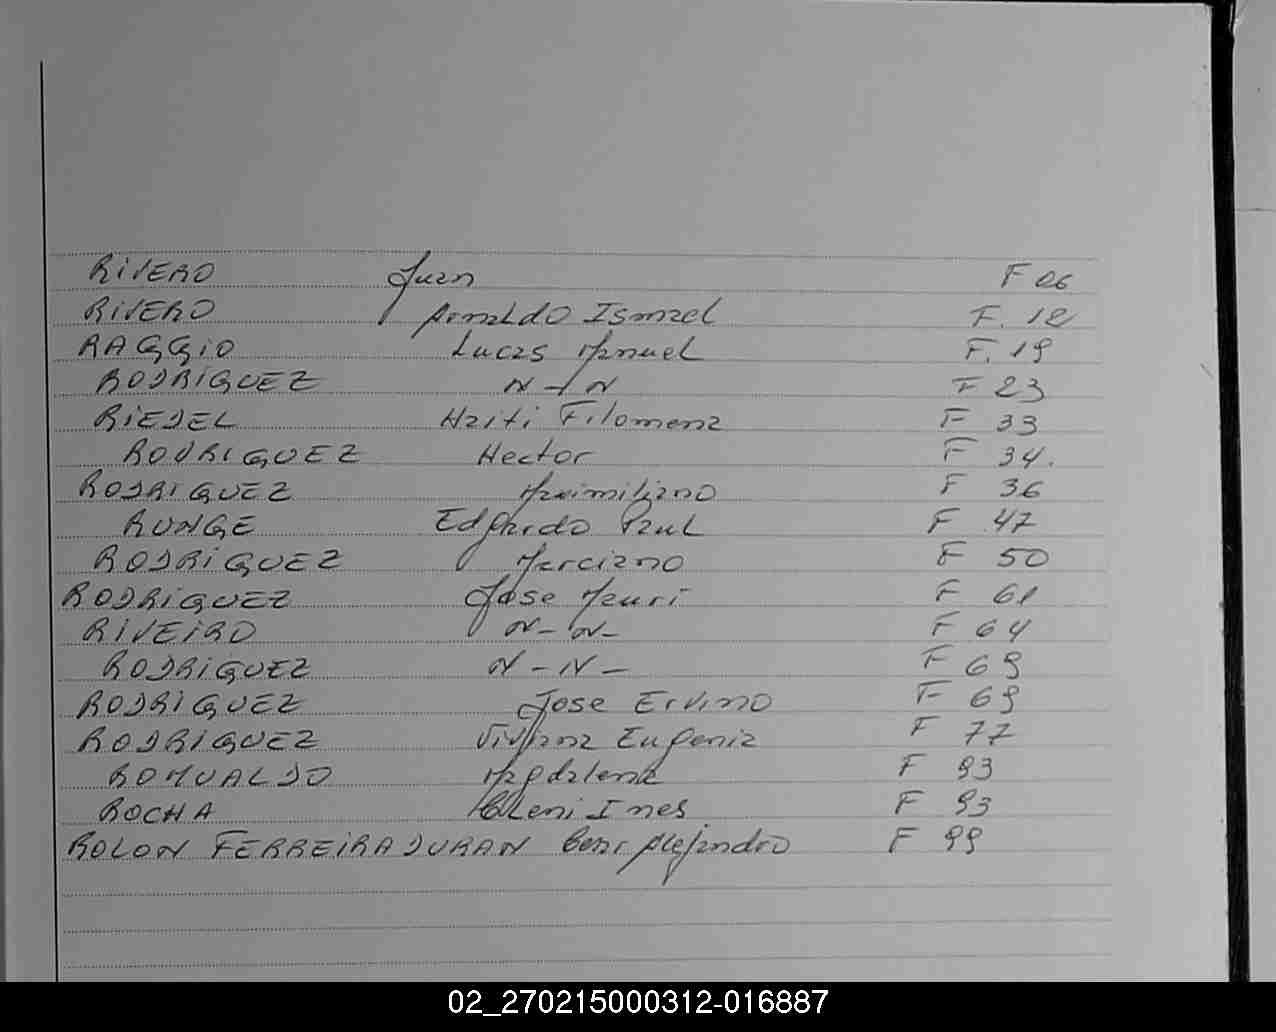 RIVERO Juan F 06
RIVERO Arnaldo Ismael F. 12
RAGGIO Lucas Manuel F. 19
RODRIGUEZ N - N F 23
RIEDEL Haiti Filomena F 33
RODRIGUEZ Hector F 34.
RODRIGUEZ Maximiliano F 36
RUNGE Edgardo Raul F 47
RODRIGUEZ Marciano F 50
RODRIGUEZ Jose Mauri F 61
RIVEIRO N - N - F 64
RODRIGUEZ N - N - F 69
RODRIGUEZ Jose Ervino F 69
RODRIGUEZ Viviana Eugenia F 77
ROMUALDO Magdalena F 93
ROCHA Ines F 93
ROLON FERREIRA DURAN Cesar Alejandro F 99
02_270215000312-016887